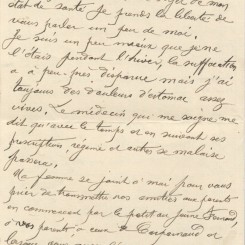 état de santé je prends la liberté de
vous parler un peu de moi.
Je suis un peu mieux que je ne
l'étais pendant l'hiver, la suffocation
a à peu-près disparue mais j'ai
toujours des douleurs d'estomac assez
vives. Le médecin qui me soigne me
dit qu'avec le temps et en suivant ses
prescription, régime et autres se malaise
passera.
Ma femme se joint à moi pour vous
prier de transmettre nos amitiés aux parents
en commencant par le petit au jeune
à vos parents à ceux de